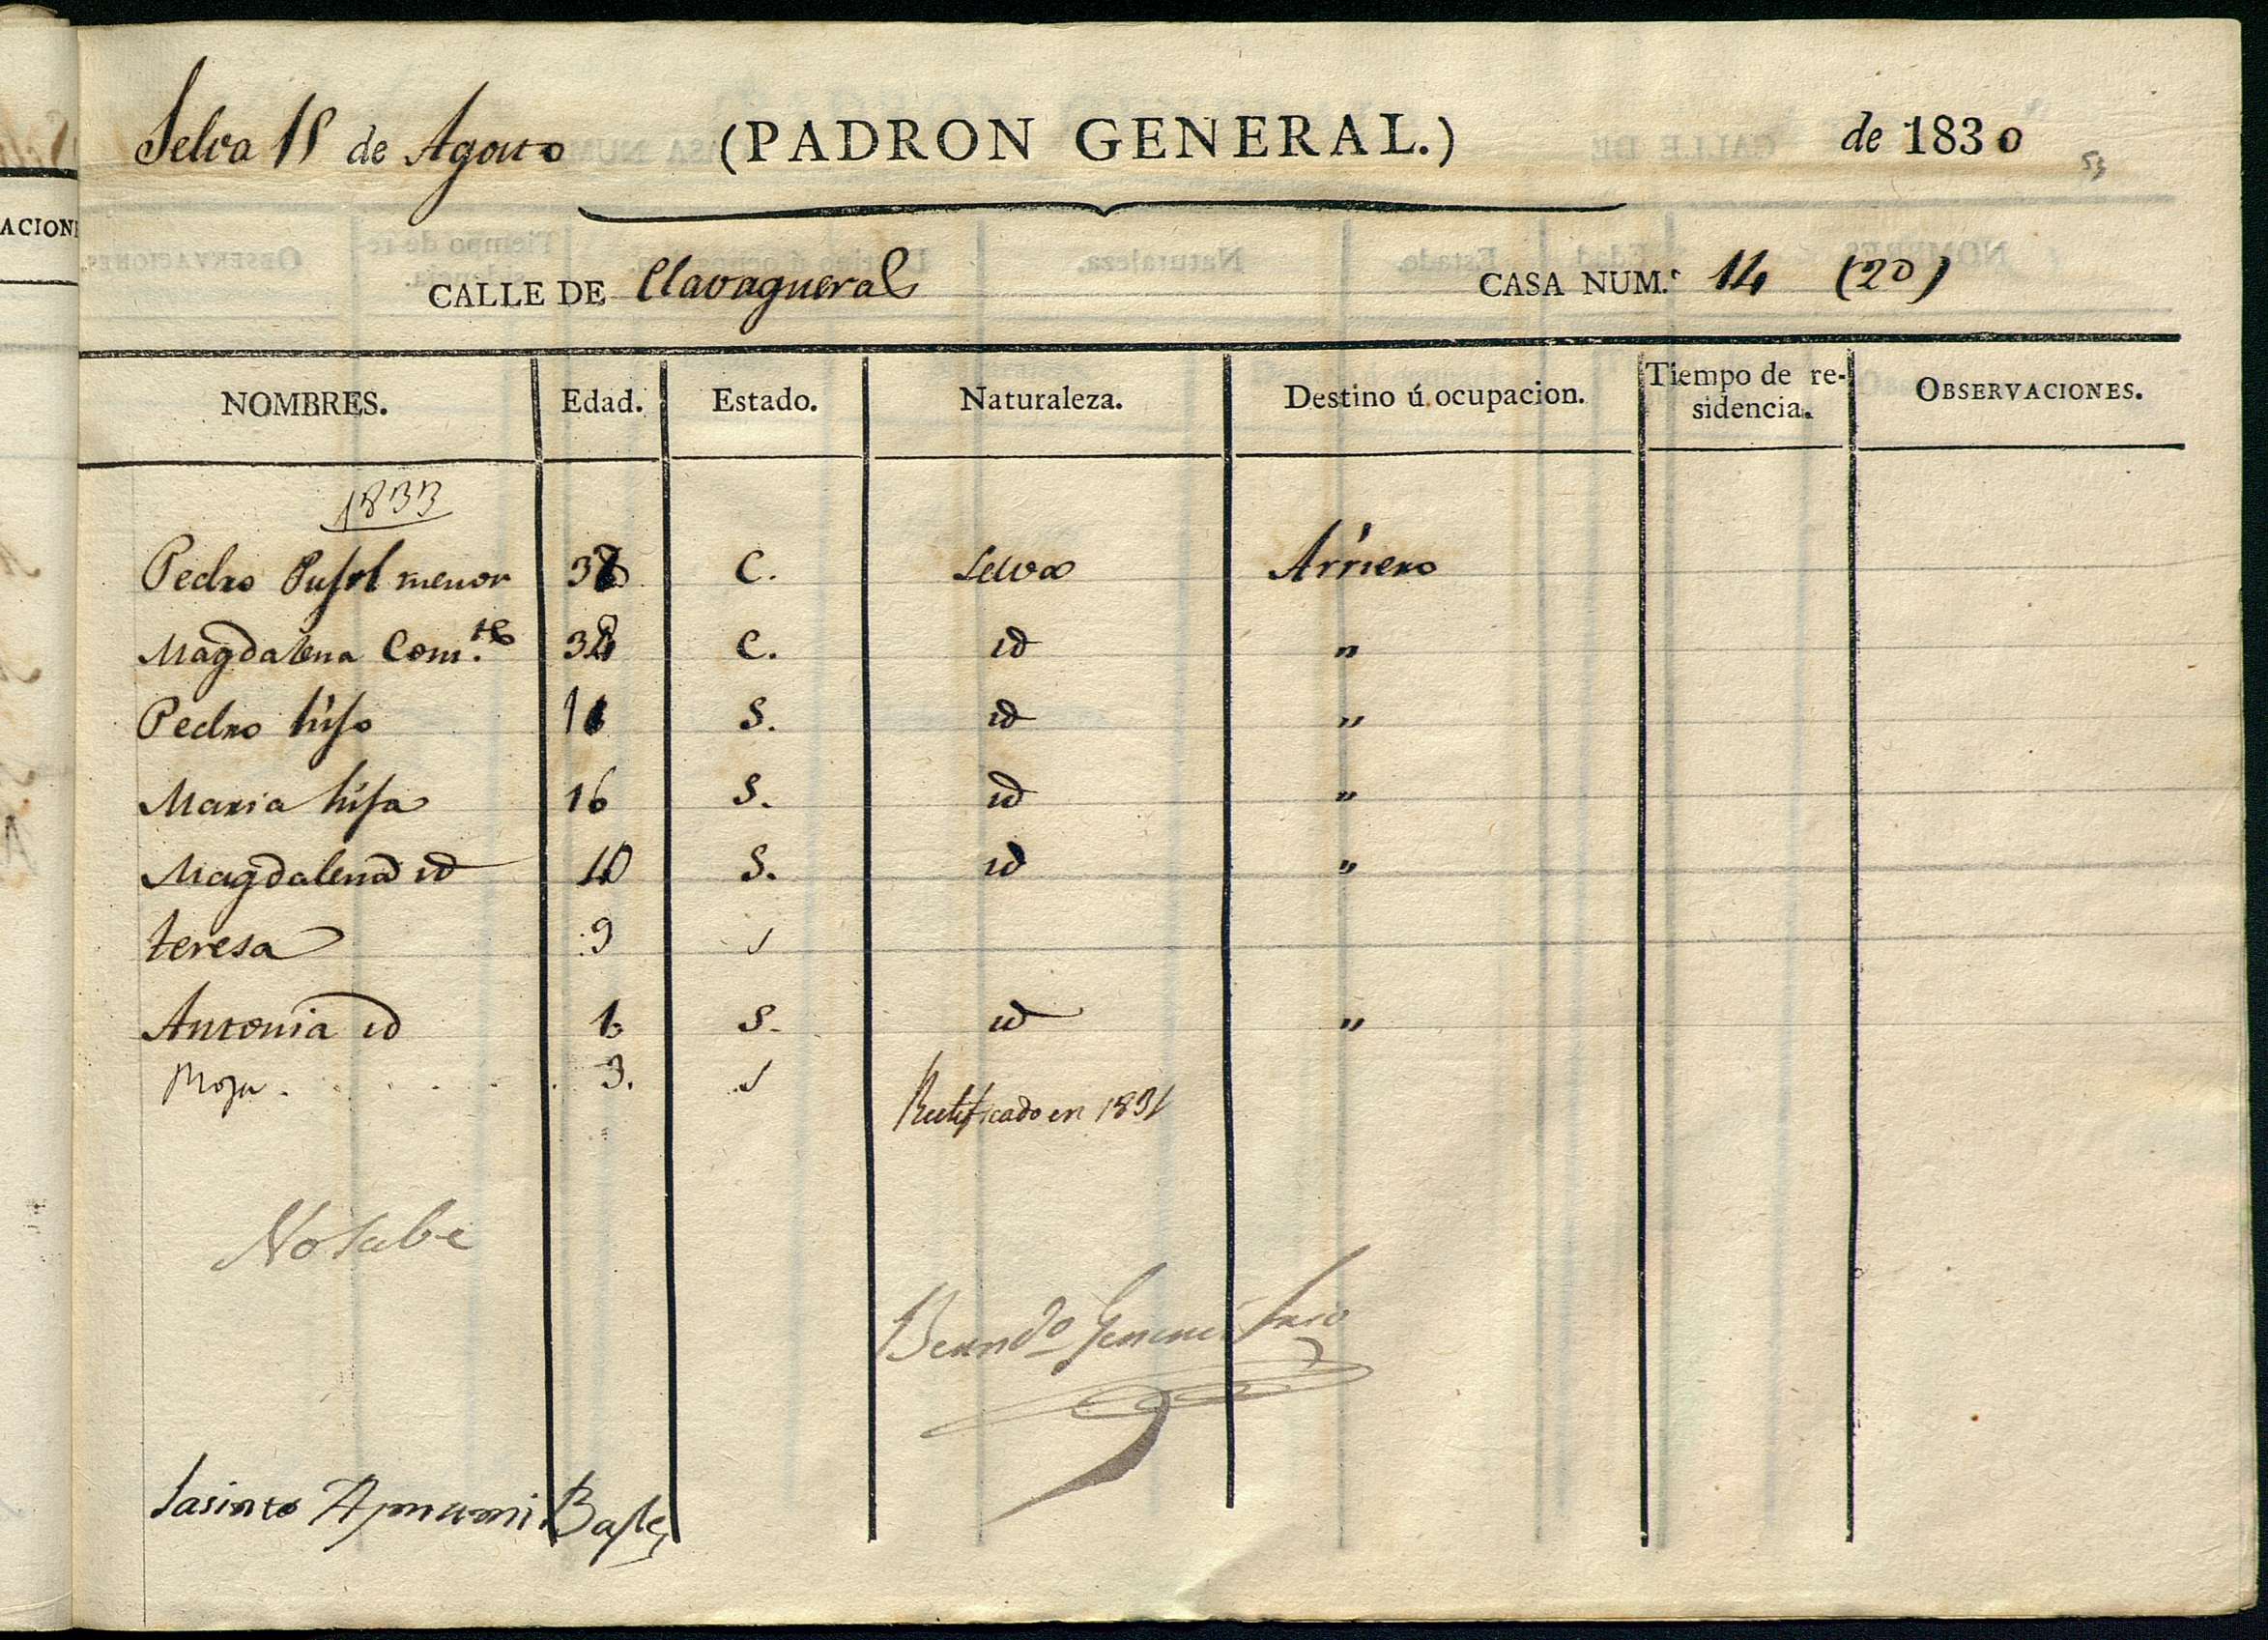 Selva 15 de Agosto (PADRON GENERAL.) de 1830
53
CALLE DE Clavagueral CASA NUM.º 14 (20)
NOMBRES. Edad. Estado. Naturaleza. Destino ú ocupacion. Tiempo de residencia. OBSERVACIONES.
1833
Pedro Pujol menor 38 C. Selva Arriero
Magdalena Com.te 38 C. id "
Pedro hijo S. id "
Maria hija 16 S. id "
Magdalena id 10 S. id "
teresa 9 s
Antonia id S. id "
Rosa . . . . . . 3. s
Rectificado en 1831
No sabe
Jasinto Bayle